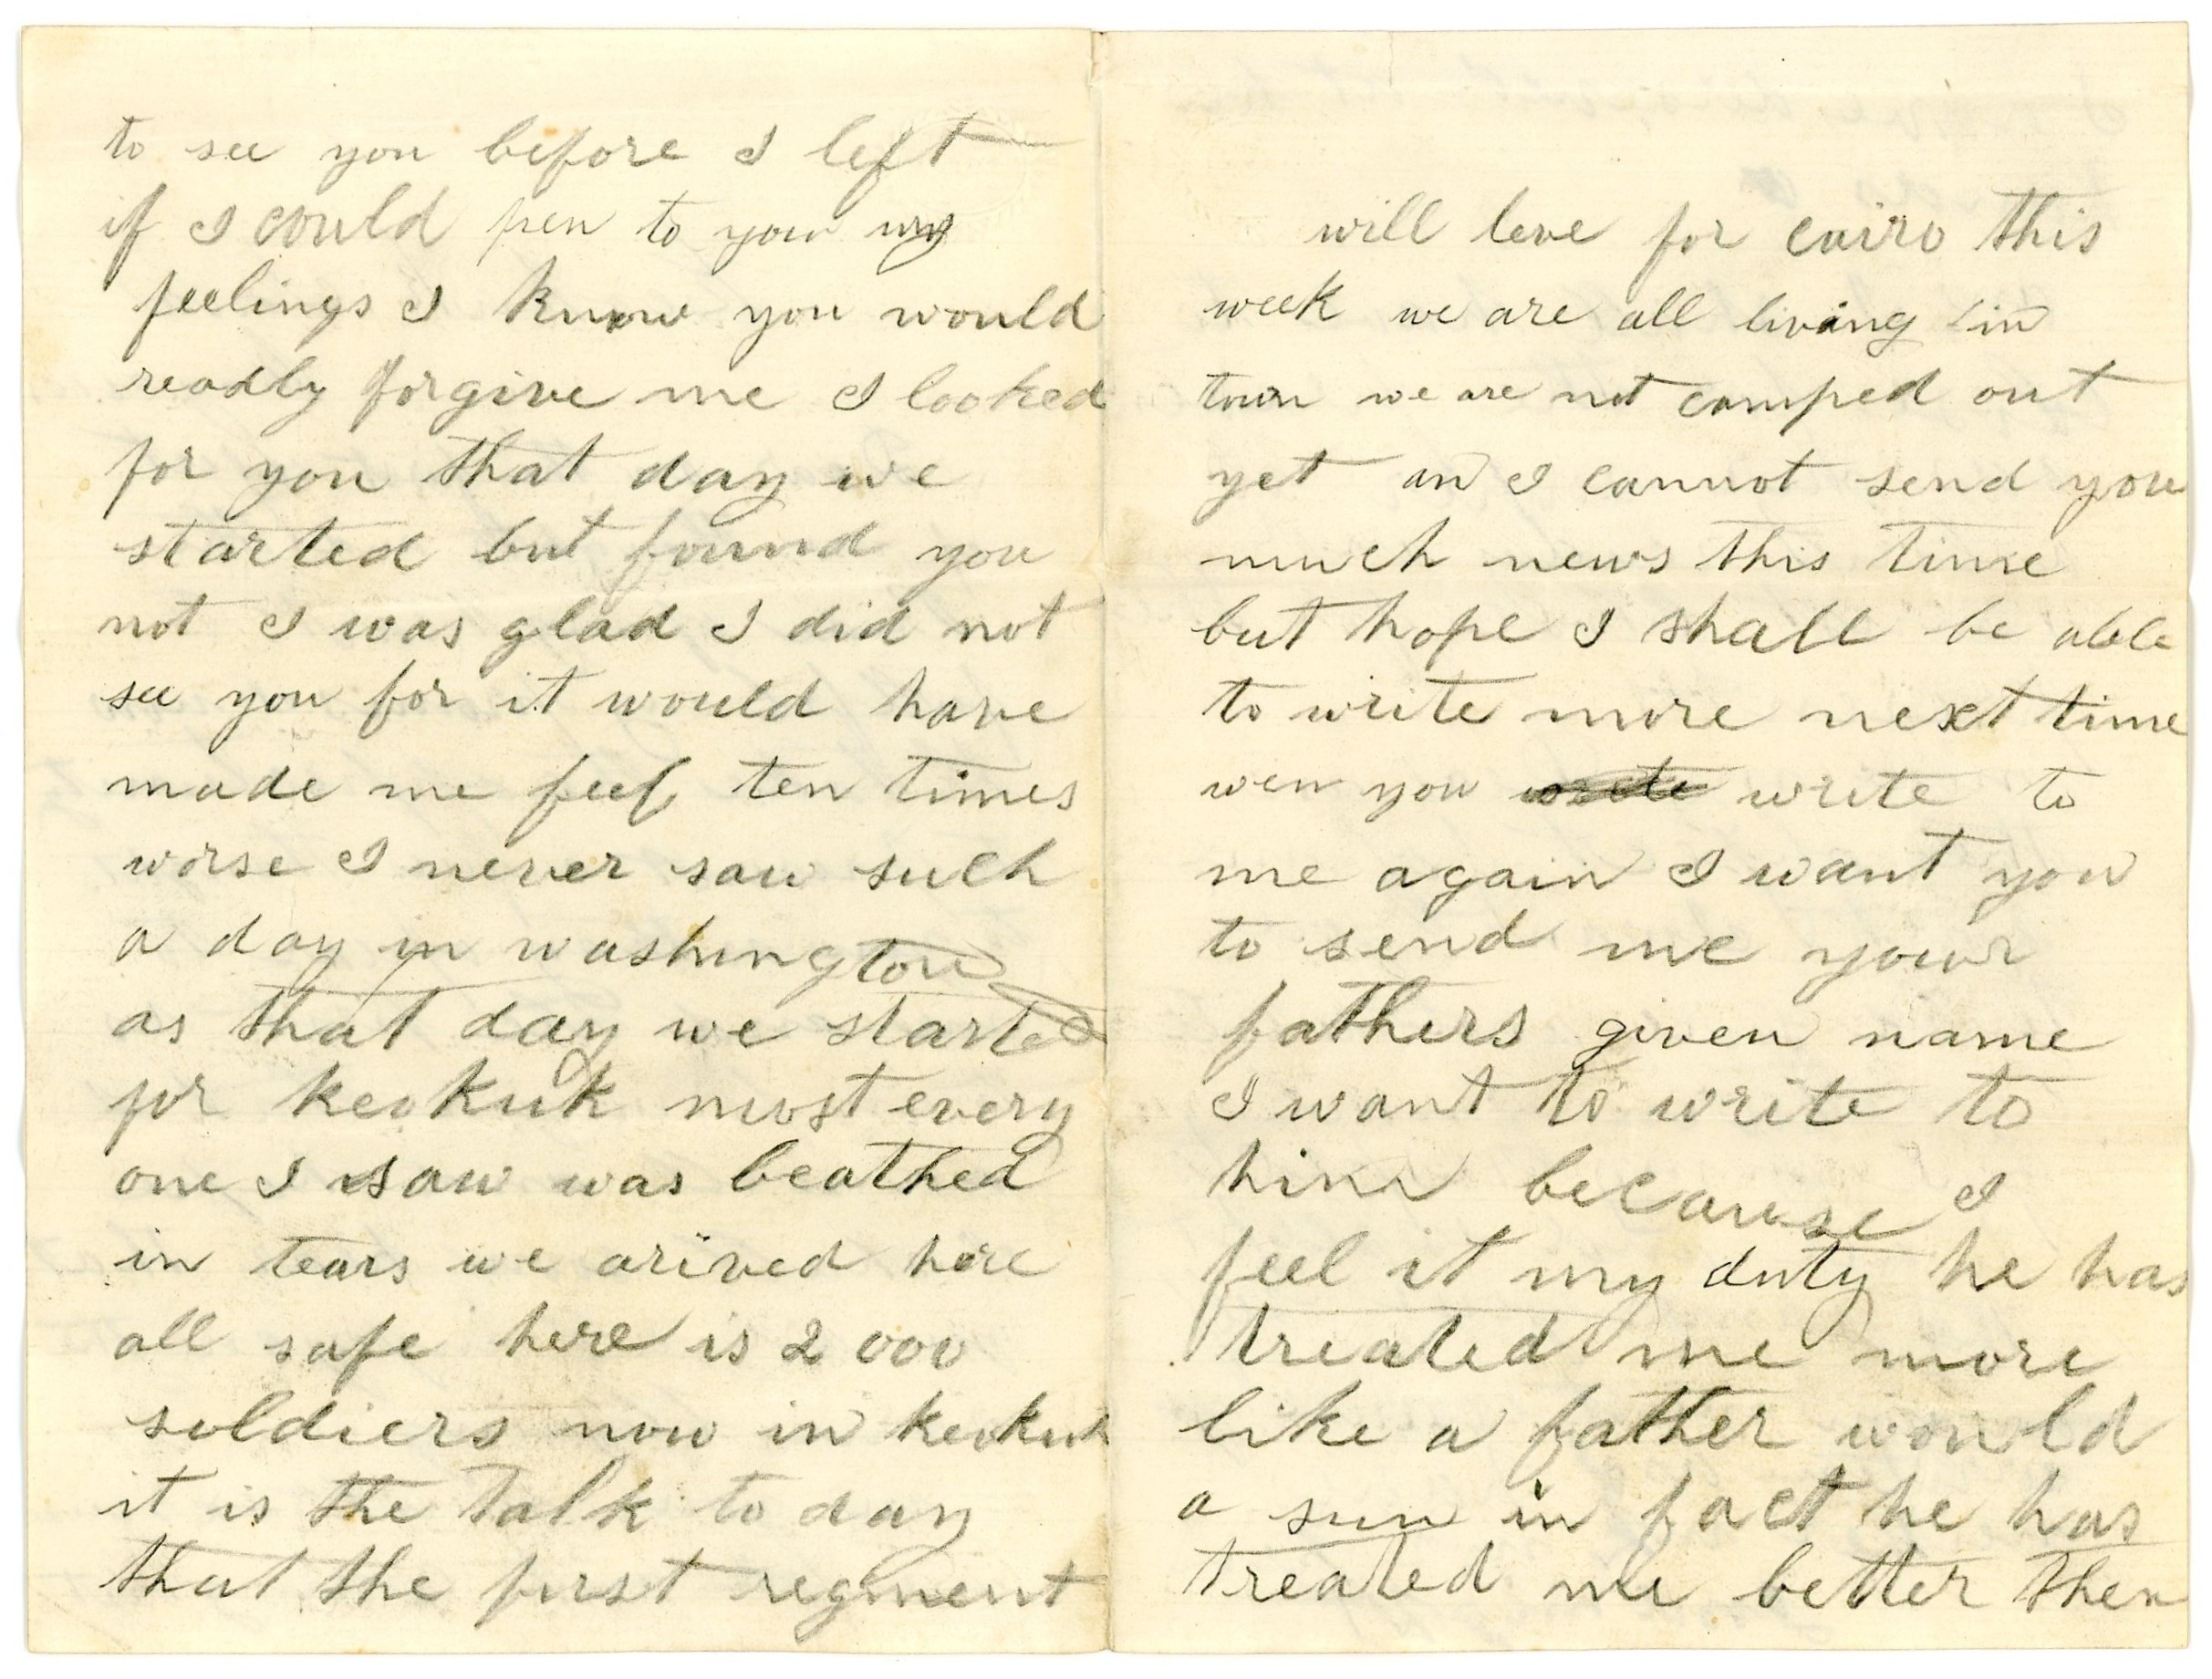 to see you before I left
if I could pen to you my
feelings I know you would
readly forgive me I looked
for you that day we
started but found you
not I was glad I did not
see you for it would have
made me feel ten times
worse I never saw such
a day in washington
as that day we started
for keokuk most every
one I saw was beathed
in tears we arived here
all safe here is 2000
soldiers now in keokuk
it is the talk to day
that the first regment
will leve for cairo this
week we are all living in
town we are not camped out
yet an I cannot send you
much news this time
but hope I shall be able
to write more next time
wen you write to
me again I want you
to send me your
fathers given name
I want to write to
him because I
feel it my duty he has
treated me more
like a father would
a sun in fact he has
treated me better then